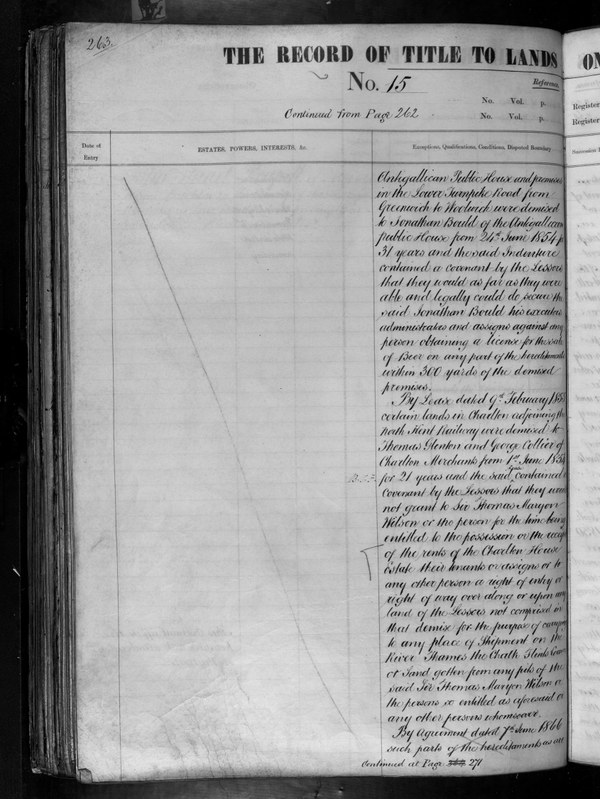 263.
THE RECORD OF TITLE TO LANDS
No. 15
Reference
Continued from Page 262
No. Vol. p.
No. Vol. p.
Date of Entry
ESTATES, POWERS, INTERESTS, &c.
Exceptions, Qualifications, Conditions, Disputed Boundary
Antigallican Public House and premises
in the Lower Turnpike Road from
Greenwich to Woolwich were demised
to Jonathan Bould of the Antigallican
public House from 24th June 1854 for
31 years and the said Indenture
contained a covenant by the Lessors
that they would as far as they were
able and legally could do, secure the
said Jonathan Bould his executors
administrators and assigns against any
person obtaining a license for the sale
of Beer on any part of the hereditaments
within 300 yards of the demised
premises.
By Lease dated 9th February
certain lands in Charlton adjoining the
North Kent Railway were demised to
Thomas Glenton and George Collier of
Charlton Merchants from 1st June 1854
for 21 years and the said contained a
Covenant by the Lessors that they would
not grant to Sir Thomas Maryon
Wilson or the person for the time being
entitled to the possession or the receipt
of the rents of the Charlton House
Estate their tenants or assigns or to
any other person a right of entry or
right of way over along or upon any
land of the Lessors not comprised in
that demise for the purpose of carrying
to any place of Shipment on the
River Thames the Chalk Flints
or Sand gotten from any pits of the
said Sir Thomas Maryon Wilson or
the persons so entitled as aforesaid or
any other persons whomsoever.
By Agreement dated 7th June 1866
such parts of the hereditaments as are
Continued at Page 271
ON
Register
Register